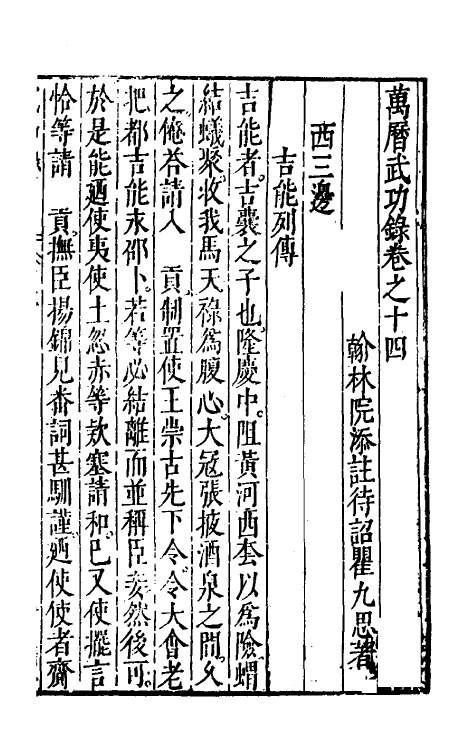 萬曆武功錄卷之十四
翰林院添註待詔瞿九思著
西三邊
吉能列傳
吉能者吉囊之子也隆慶中阻黃河西套以為險蝟
結蟻聚收我馬天祿為腹心大冦張掖酒泉之間久
之俺荅請入　貢制置使王崇古先下令令大會老
把都吉能永邵卜若等必結離而並稱臣妾然後可
於是能廼使夷使土忽赤等欵塞請和已又使擺言
恰等請　貢撫臣揚錦見番詞甚馴謹廼使使者齎